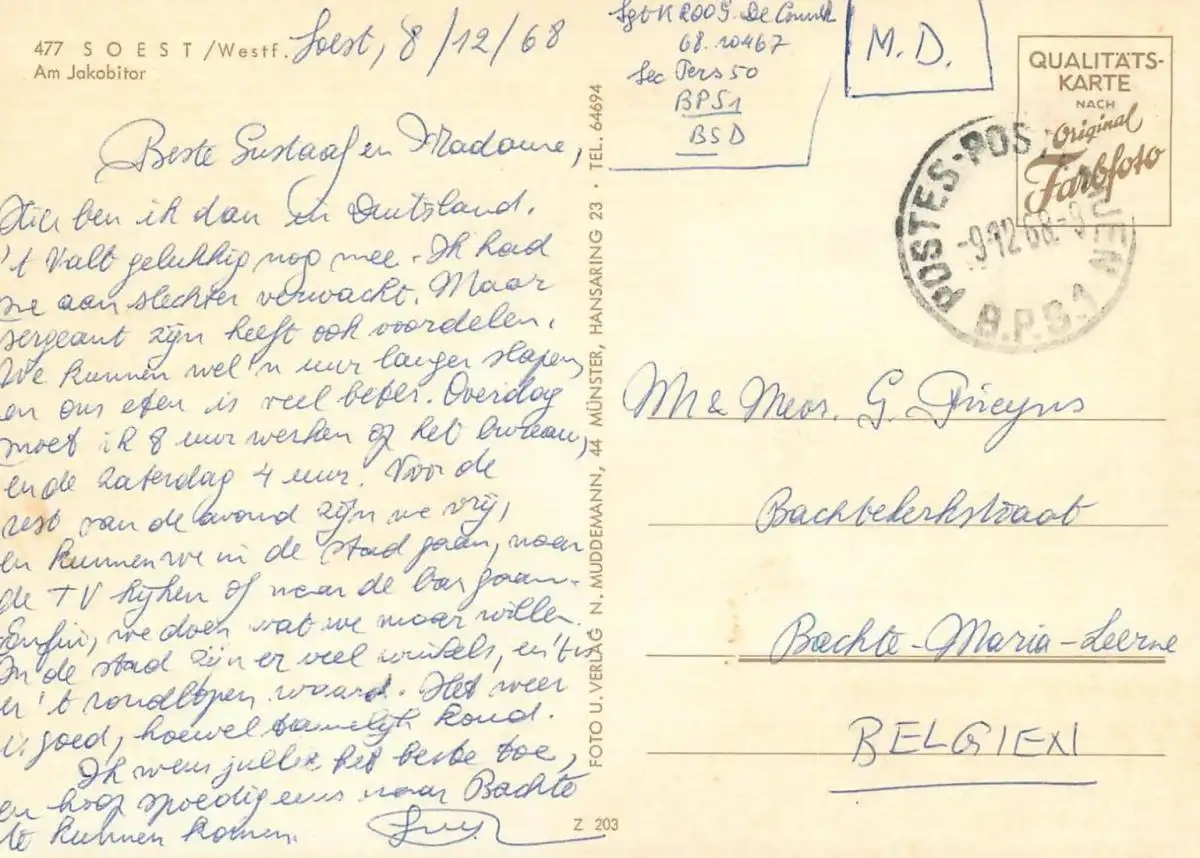 477 SOEST/Westf.
Am Jakobitor
Soest, 8/12/68
Beste Gustaaf en Madame,
Hier ben ik dan in Duitsland.
't Valt gelukkig nog mee. Ik had
me aan slechter verwacht. Maar
sergeant zijn heeft ook voordelen.
We kunnen wel 'n uur langer slapen,
en ons eten is veel beter. Overdag
moet ik 8 uur werken op het bureau,
en de zaterdag 4 uur. Voor de
rest van de avond zijn we vrij,
en kunnen we in de stad gaan, naar
de TV kijken of naar de bar gaan.
Enfin, we doen wat we maar willen.
In de stad zijn er veel winkels, en 't is
er 't rondlopen waard. Het weer
is goed, hoewel tamelijk koud.
Ik wens jullie het beste toe,
en hoop spoedig eens naar Bachte
te kunnen komen.
FOTO U. VERLAG N. MUDDEMANN, 44 MÜNSTER, HANSARING 23 · TEL. 64694
Z 203
Sgt K 2009 De
68.10467
Sec Pers 50
BPS1
BSD
M.D.
QUALITÄTS-
KARTE
NACH
Original
Farbfoto
POSTES-POS
-9-12 68-9
B.P.S.1
Mr & Mevr. G.
Bachtekerkstraat
Bachte-Maria-Leerne
BELGIEN